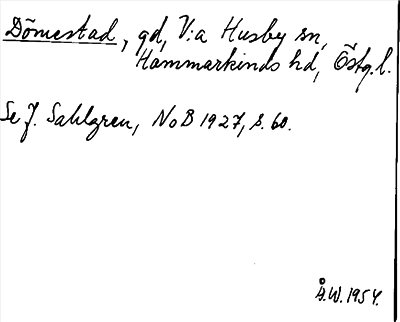 Dömestad, gd, V:a Husby sn,
Hammarkinds hd, Östg.l.
Se J. Sahlgren, NoB 1927, s. 60.
Å.W. 1954.